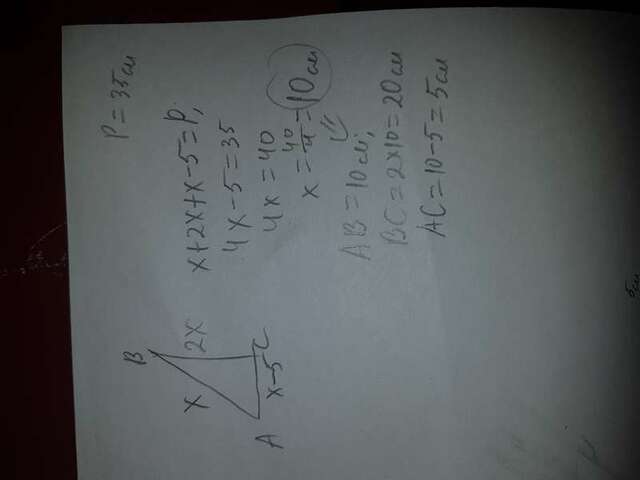 P = 35см
B
x
2x
A
x-5
C
x+2x+x-5=P,
4x-5=35
4x=40
x = 40/4 = 10см
AB=10см,
BC=2x10=20см
AC=10-5=5см